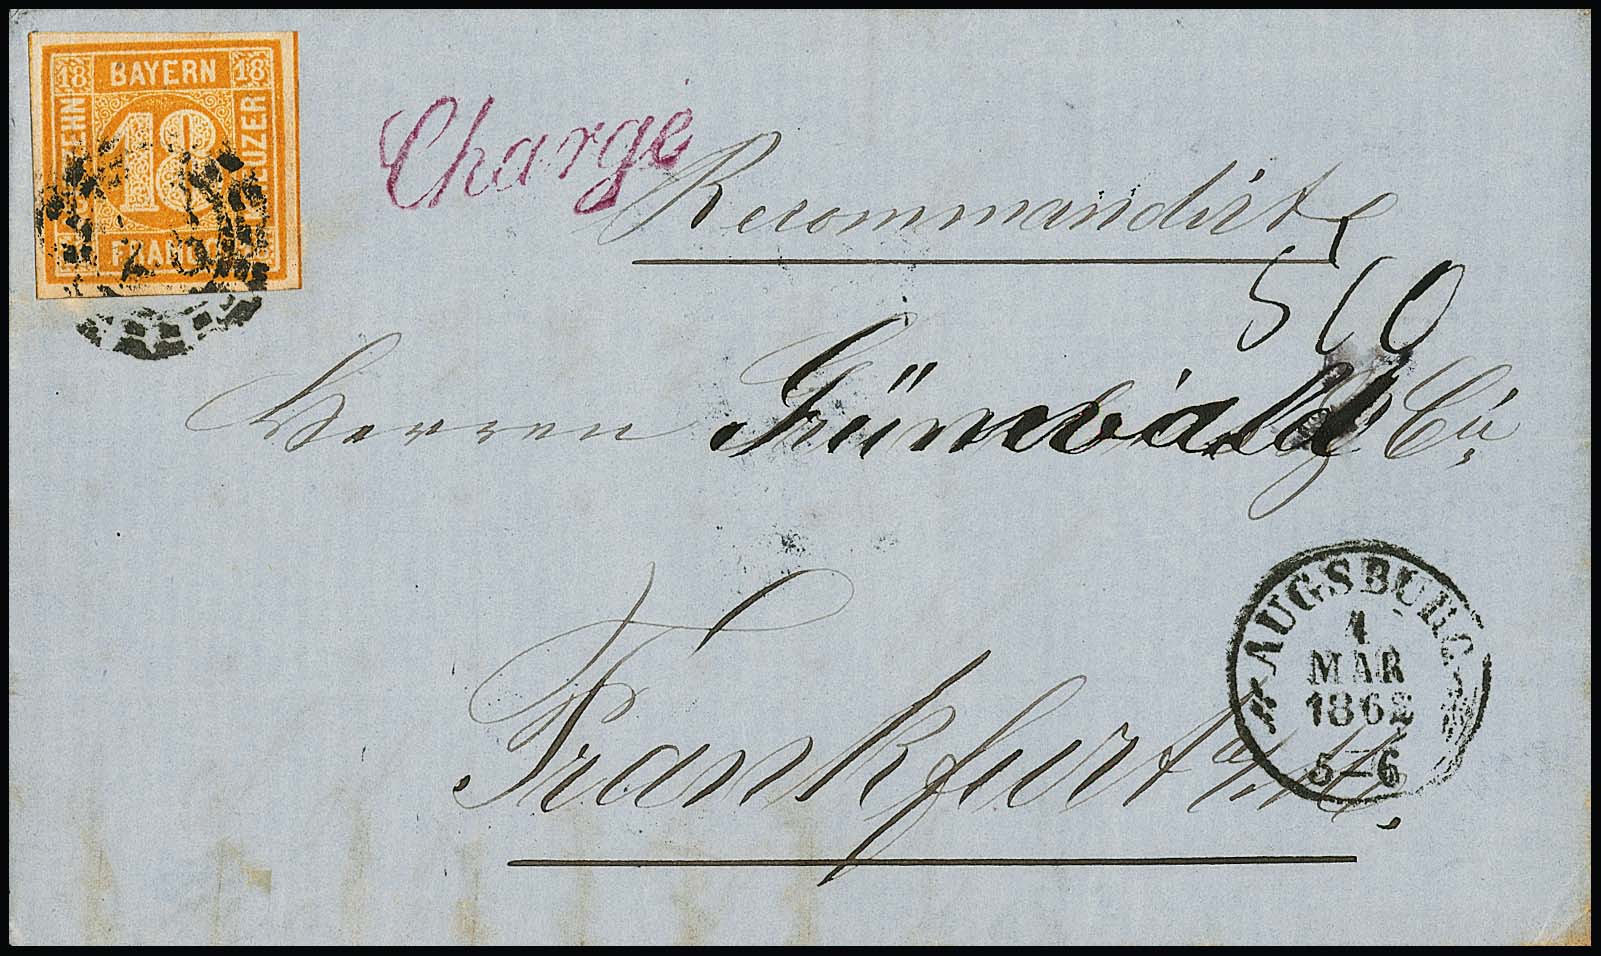 18 BAYERN 18
ZEHN
KREUZER
18
FRANCO
Charge
Recommandirt
510
Herren Grünwald & Cie
AUGSBURG
4
MAR
1862
5-6
Frankfurt a/M.